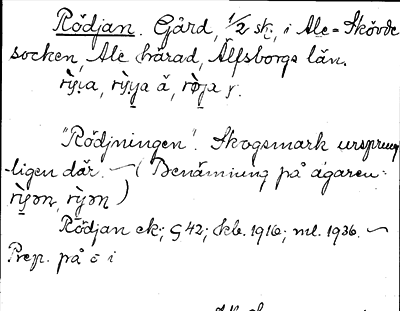 Rödjan. Gård, 1/2 sk., i Ale-Skövde
socken, Ale härad, Älfsborgs län.
"Rödjningen". Skogsmark ursprung-
ligen där. — (Benämning på ägaren:
Rödjan ek; G 42; kb. 1916; ml. 1936. —
Prep. på o i